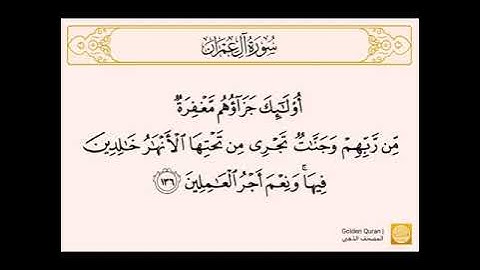 سُورَةُ آلِ عِمْرَان
أُوْلَٰٓئِكَ جَزَآؤُهُم مَّغْفِرَةٌ
مِّن رَّبِّهِمْ وَجَنَّٰتٌ تَجْرِى مِن تَحْتِهَا ٱلْأَنْهَٰرُ خَٰلِدِينَ
فِيهَا ۚ وَنِعْمَ أَجْرُ ٱلْعَٰمِلِينَ ١٣٦
Golden Quran |
المصحف الذهبي